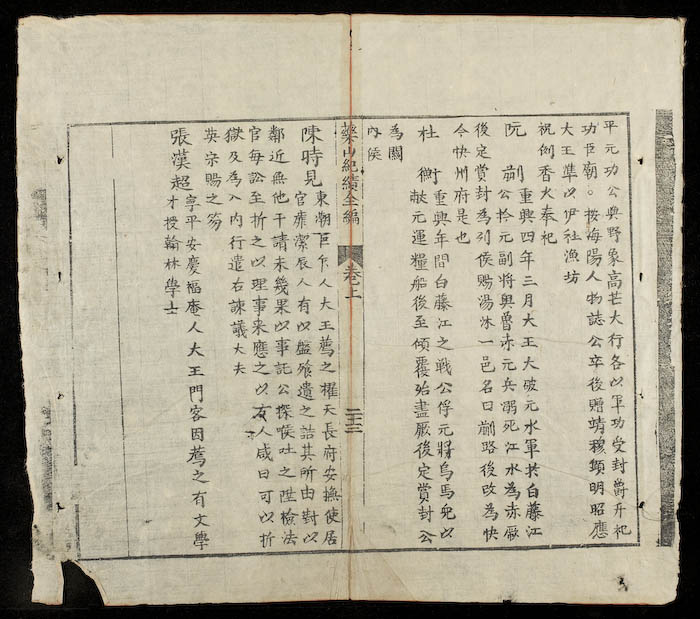 平元功公與野象高芒大行各以軍功受封爵升祀
功臣廟。按海陽人物誌公卒後贈靖穆顯明昭應
大王準以伊社漁坊
祝例香火奉祀
阮 蒯 重興四年三月大王大破元水軍於白藤江
公拎元副將與曾沐元兵溺死江水為赤厥
後定賞封為列侯賜湯沐一邑名曰蒯路後改為快
今快州府是也
杜 衡 重興年間白藤江之戰公俘元將烏馬兒以
献元運糧船後至傾覆殆盡厥後定賞封公
為關
內侯
藥山紀績全編 卷之上 二十三
陳時見 東潮巨乍人大王薦之擢天長府安撫使居
官廉潔辰人有以盤飧遺之詰其所由對以
鄰近無他干請未幾果以事記公探喉吐之陞檢法
官每訟至折之以理事來應之以 人咸曰可以折
獄及為入內行遣右諫議大夫
英宗賜之笏
張漢超 字平安慶福庵人大王門客因薦之有文學
才授翰林學士